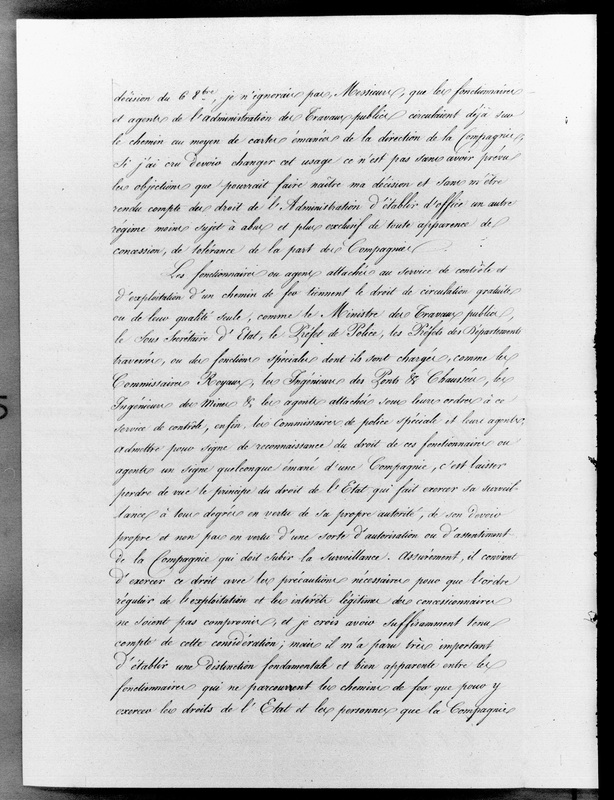 décision du 6 8bre, je n'ignorais pas, Messieurs, que les fonctionnaires
et agents de l'administration des Travaux publics circulaient déjà sur
le chemin au moyen de cartes émanées de la direction de la Compagnie,
Si j'ai cru devoir changer cet usage ce n'est pas sans avoir prévu
les objections que pourrait faire naître ma décision et sans m'être
rendu compte des droit de l'Administration d'établir d'office un autre
régime moins sujet à abus et plus exclusif de toute apparence de
concession, de tolérance de la part des Compagnies.
Les fonctionnaires ou agens attachés au service de contrôle et
d'exploitation d'un chemin de fer tiennent le droit de circulation gratuite
ou de leur qualité seule, comme le Ministre des Travaux publics,
le Sous Secrétaire d'Etat, le Préfet de Police, les Préfets des Départements
traversés, ou des fonctions spéciales dont ils sont chargés, comme les
Commissaires Royaux, les Ingénieurs des Ponts & Chaussées, les
Ingénieurs des Mines & les agents attachés sous leurs ordres à ce
service de contrôle, enfin, les Commissaires de police spéciale et leurs agents;
admettre pour signe de reconnaissance du droit de ces fonctionnaires ou
agents un signe quelconque émané d'une Compagnie, c'est laisser
perdre de vue le principe du droit de l'Etat qui fait exercer sa surveil-
lance à tous degrés en vertu de sa propre autorité, de son devoir
propre et non pas en vertu d'une sorte d'autorisation ou d'assentiment
de la Compagnie qui doit subir la surveillance. Assurément, il convient
d'exercer ce droit avec les précautions nécessaires pour que l'ordre
régulier de l'exploitation et les intérêts légitimes des concessionnaires
ne soient pas compromis, et je crois avoir suffisamment tenu
compte de cette considération; mais il m'a paru très important
d'établir une distinction fondamentale et bien apparente entre les
fonctionnaires qui ne parcourent les chemins de fer que pour y
exercer les droits de l'Etat et les personnes que la Compagnie